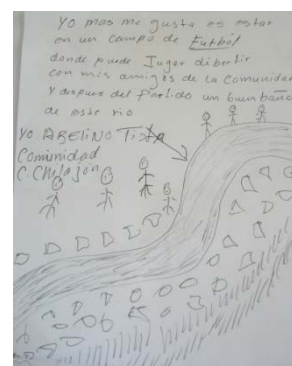 Yo mas me gusta es estar
en un campo de Futból
donde puede Jugar dibertir
con mis amigos de la Comunidad
y despues del Partido un buen baño
de este rio
Yo. ABELINO
Comunidad
C. Chilajon